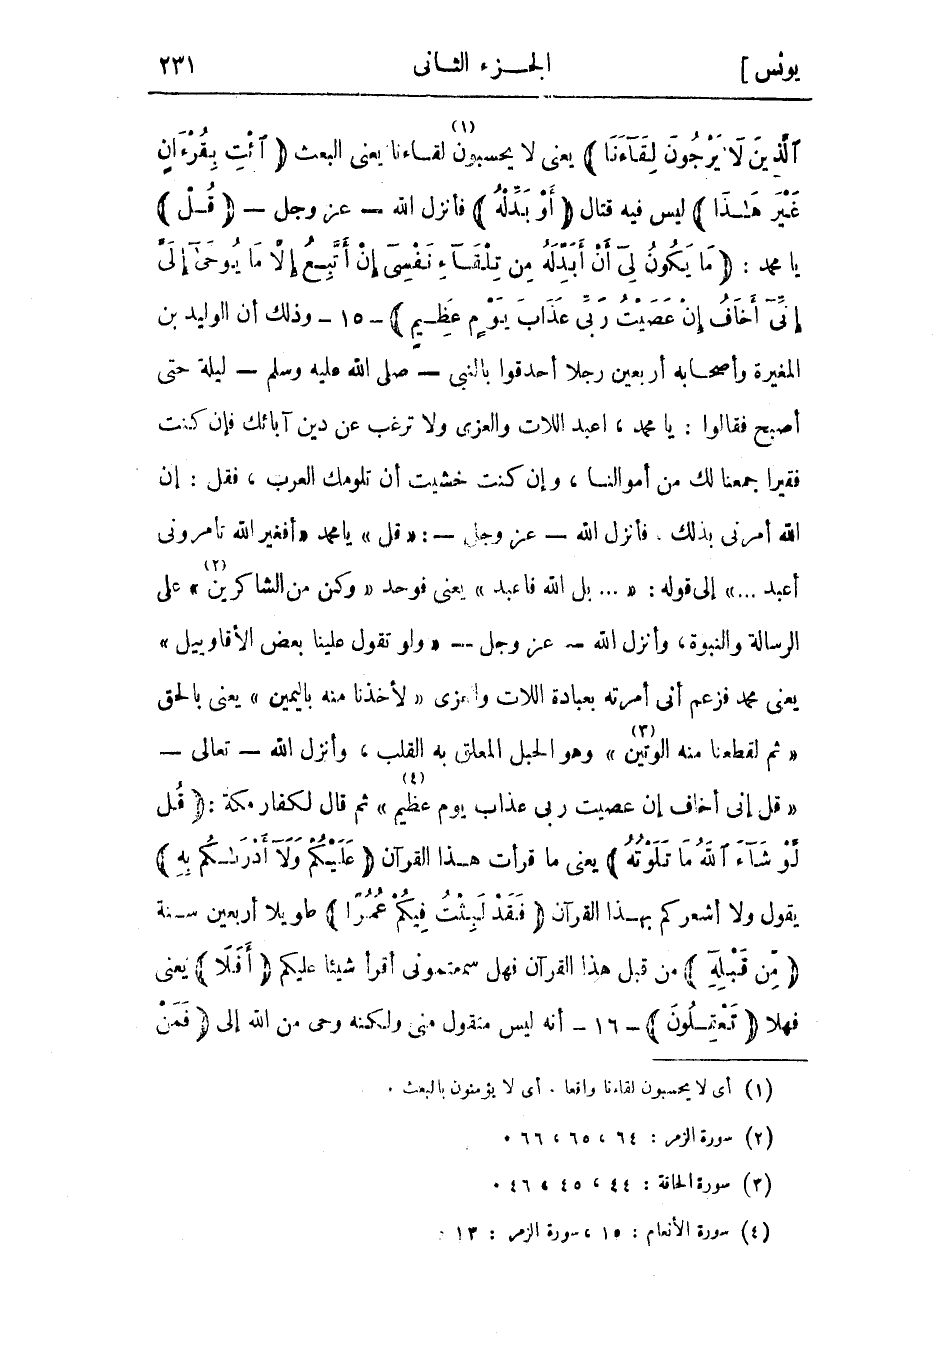 يونس ] الجـزء الثانى ٢٣١
ٱلَّذِينَ لَا يَرْجُونَ لِقَآءَنَا ) يعنى لا يحسبون (١) لقاءنا يعنى البعث ( ٱئْتِ بِقُرْءَانٍ
غَيْرِ هَٰذَا ) ليس فيه قتال ( أَوْ بَدِّلْهُ ) فأنزل الله — عز وجل — ( قُلْ )
يا محمد : ( مَا يَكُونُ لِىٓ أَنْ أُبَدِّلَهُ مِن تِلْقَآءِ نَفْسِىٓ إِنْ أَتَّبِعُ إِلَّا مَا يُوحَىٰٓ إِلَىَّ
إِنِّىٓ أَخَافُ إِنْ عَصَيْتُ رَبِّى عَذَابَ يَوْمٍ عَظِيمٍ ) - ١٥ - وذلك أن الوليد بن
المغيرة وأصحابه أربعين رجلا أحدقوا بالنبى — صلى الله عليه وسلم — ليلة حتى
أصبح فقالوا : يا محمد ، اعبد اللات والعزى ولا ترغب عن دين آبائك فإن كنت
فقيرا جمعنا لك من أموالنا ، وإن كنت خشيت أن تلومك العرب ، فقل : إن
الله أمرنى بذلك . فأنزل الله — عز وجل — : « قل » يا محمد « أفغير الله تأمرونى
أعبد ... » إلى قوله : « ... بل الله فاعبد » يعنى فوحد « وكن من الشاكرين (٢) » على
الرسالة والنبوة ، وأنزل الله — عز وجل — « ولو تقول علينا بعض الأقاويل »
يعنى محمد فزعم أنى أمرته بعبادة اللات والعزى « لأخذنا منه باليمين » يعنى بالحق
« ثم لقطعنا منه الوتين (٣) » وهو الحبل المعلق به القلب ، وأنزل الله — تعالى —
« قل إنى أخاف إن عصيت ربى عذاب يوم عظيم (٤) » ثم قال لكفار مكة : ( قُل
لَّوْ شَآءَ ٱللَّهُ مَا تَلَوْتُهُ ) يعنى ما قرأت هذا القرآن ( عَلَيْكُمْ وَلَآ أَدْرَىٰكُم بِهِ )
يقول ولا أشعركم بهذا القرآن ( فَقَدْ لَبِثْتُ فِيكُمْ عُمُرًا ) طويلا أربعين سنة
( مِّن قَبْلِهِ ) من قبل هذا القرآن فهل سمعتمونى أقرأ شيئا عليكم ( أَفَلَا ) يعنى
فهلا ( تَعْقِلُونَ ) - ١٦ - أنه ليس متقول منى ولكنه وحى من الله إلى ( فَمَنْ
(١) أى لا يحسبون لقاءنا واقعا . أى لا يؤمنون بالبعث .
(٢) سورة الزمر : ٦٤ ، ٦٥ ، ٦٦ .
(٣) سورة الحاقة : ٤٤ ، ٤٥ ، ٤٦ .
(٤) سورة الأنعام : ١٥ ، سورة الزمر : ١٣ .